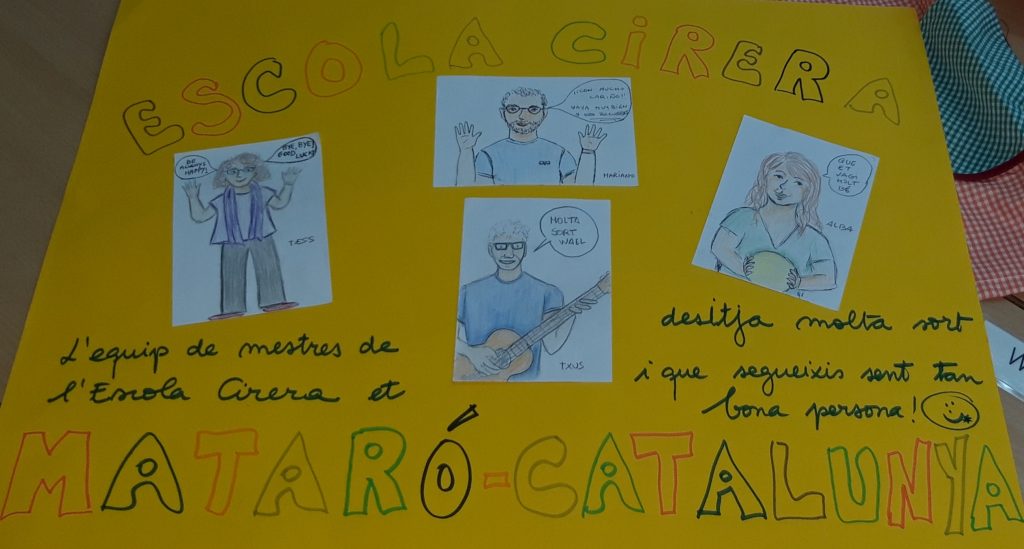 ESCOLA CIRERA
BE
ALWAYS
HAPPY!
BYE, BYE!
GOOD
LUCK!
TXESS
¡¡CON MUCHO
CARIÑO!!
VAYA MUY BIEN
MARIANO
QUE
ET
VAGI
MOLT
BÉ
ALBA
MOLTA
SORT
WAEL
TXUS
L'equip de mestres de
l'Escola Cirera et
desitja molta sort
i que segueixis sent tan
bona persona!
MATARÓ-CATALUNYA